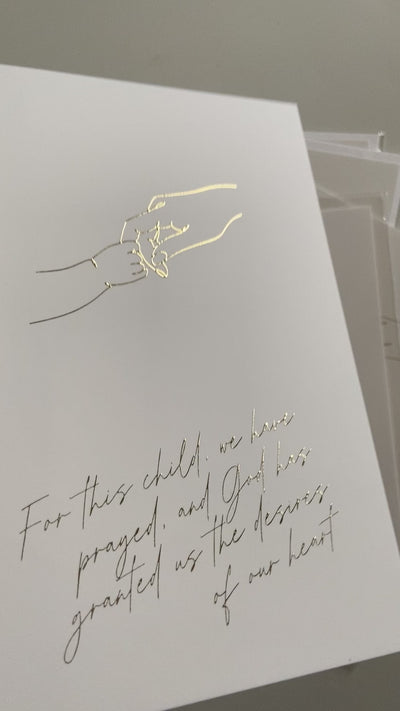 For this child, we have
prayed, and God has
granted us the desires
of our heart